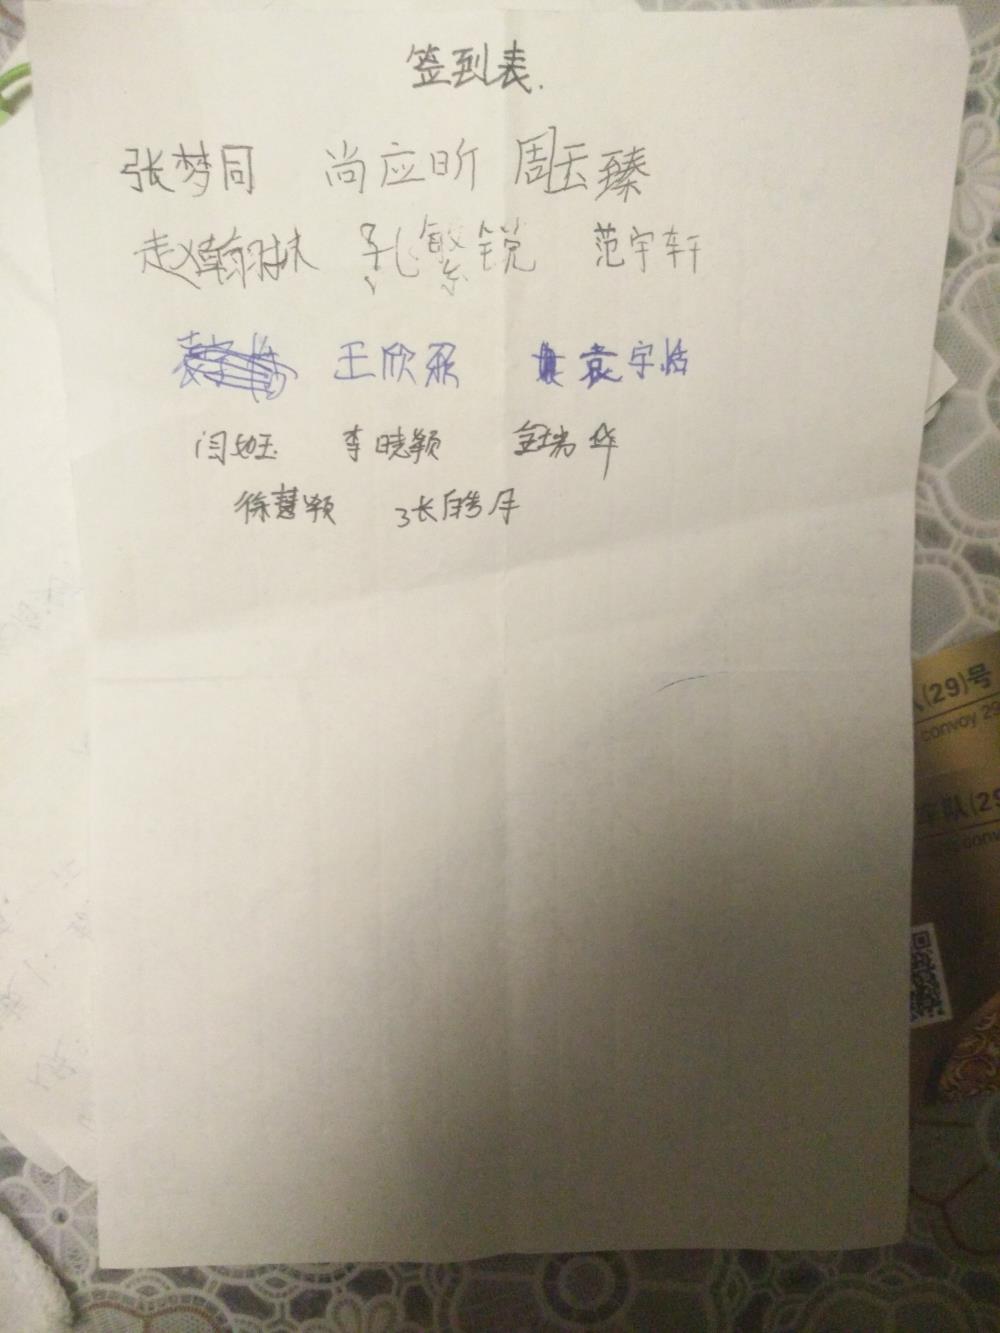 签到表.
张梦同 尚应昕 周玉臻
赵翰林 孔繁锐 范宇轩
王欣 袁宇恬
闫如玉 李晓颖 金瑞华
徐慧颖 张皓月
(29)号
convoy 29
车队(29